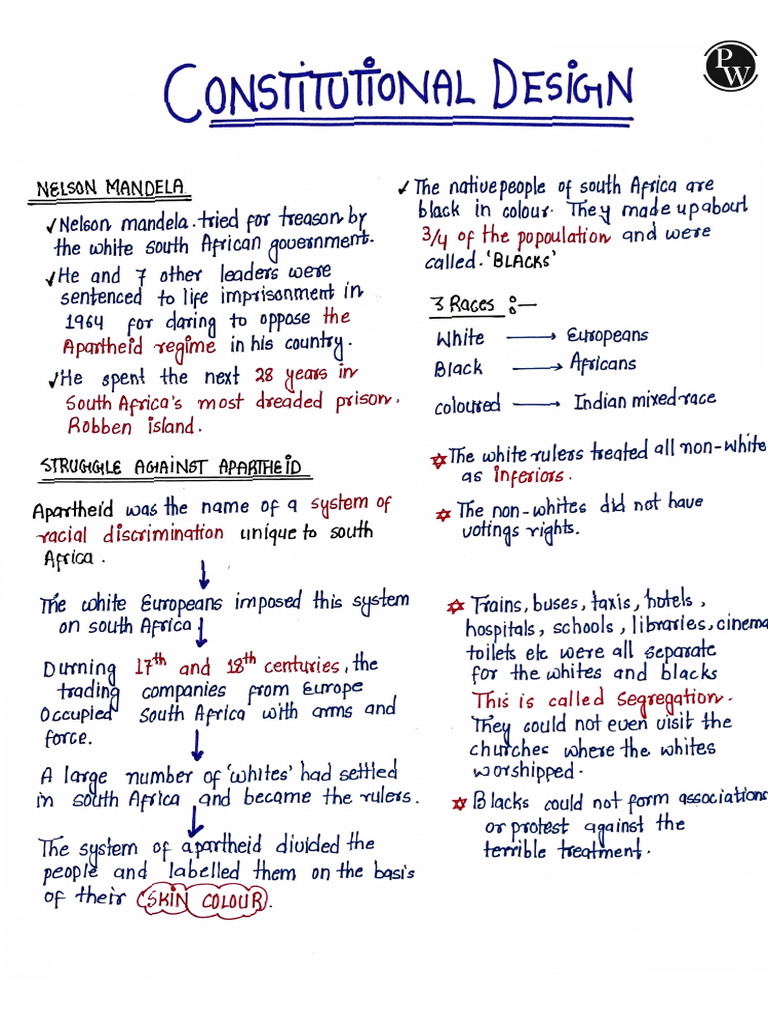 CONSTITUTIONAL DESIGN
PW
NELSON MANDELA
✓ Nelson mandela. tried for treason by
the white south African government.
✓ He and 7 other leaders were
sentenced to life imprisonment in
1964 for daring to oppose the
Apartheid regime in his country.
✓ He spent the next 28 years in
South Africa's most dreaded prison,
Robben island.
STRUGGLE AGAINST APARTHEID
Apartheid was the name of a system of
racial discrimination unique to south
Africa.
The white Europeans imposed this system
on south Africa.
Durning 17th and 18th centuries, the
trading companies from Europe
Occupied south Africa with arms and
force.
A large number of 'whites' had settled
in south Africa and became the rulers.
The system of apartheid divided the
people and labelled them on the basis
of their SKIN COLOUR.
✓ The native people of south Africa are
black in colour. They made up about
3/4 of the popoulation and were
called. 'BLACKS'
3 Races :-
White → Europeans
Black → Africans
coloured → Indian mixed race
The white rulers treated all non-white
as inferiors.
The non-whites did not have
votings rights.
Trains, buses, taxis, hotels,
hospitals, schools, libraries, cinema
toilets etc were all separate
for the whites and blacks
This is called segregation.
They could not even visit the
churches where the whites
worshipped.
Blacks could not form associations
or protest against the
terrible treatment.